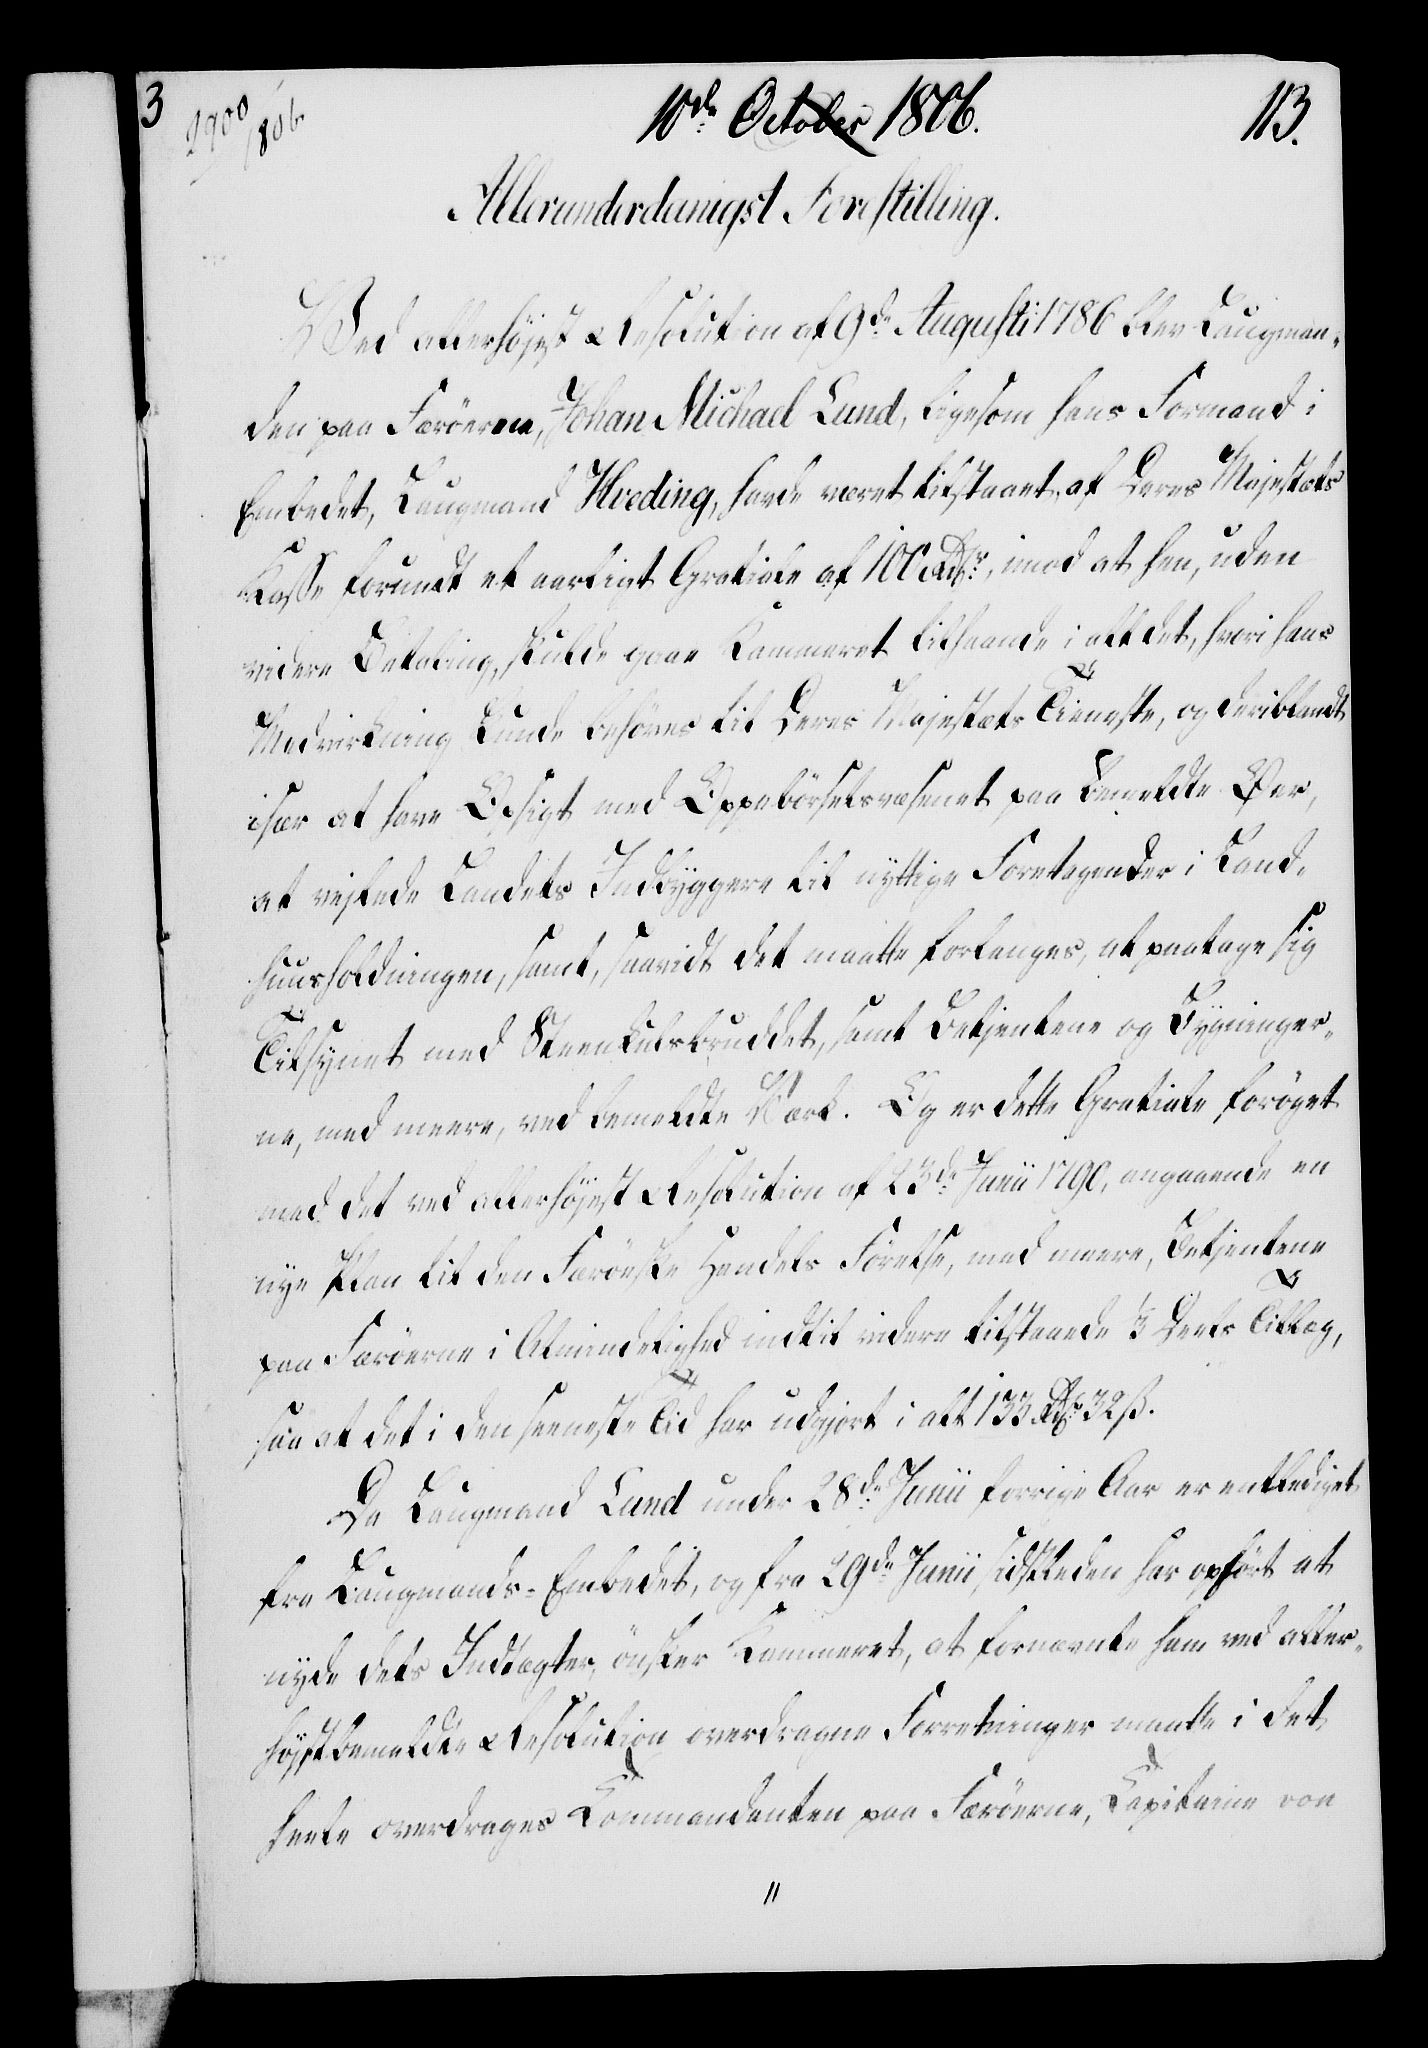 3
2900
1806.
10de October 1806.
113.
Allerunderdanigst Forestilling.
Ved allerhøjest Resolution af 9de Augusti 1786 blev Laugman-
den paa Færöerne, Johan Michael Lund, ligesom hans Formand i
Embedet, Laugmand Hveding, havde været tilstaaet, af Deres Majestæts
Kasse forundt et aarligt Gratiale af 100 Rdr, imod at han, uden
videre Betaling, skulde gaae Kammeret tilhaande i alt det, hvori hans
Medvirkning kunde behøves til Deres Majestæts Tieneste, og deriblandt
især at have Opsigt med Oppebörselsvæsenet paa bemeldte Øer,
at vejlede Landets Indbyggere til nyttige Foretagender i Land-
huusholdningen, samt, saavidt det maatte forlanges, at paatage sig
Tilsynet med Steenkulsbruddet, samt Betjentene og Bygninger-
ne, med meere, ved bemeldte Værk. Og er dette Gratiale forøget
med det ved allerhøjest Resolution af 23de Junii 1790, angaaende en
nye Plan til den Færöeske Handels Førelse, med meere, Betjentene
paa Færöerne i Almindelighed indtil videre tilstaaede 1/3 Deels Tillæg,
saa at det i den seeneste Tid har udgjort i alt 133 Rdr 32 ß.
Da Laugmand Lund under 28de Junii forrige Aar er entlediget
fra Laugmands-Embedet, og fra 29de Junii sidstleden har ophört at
nyde dets Indtægter, ønsker Kammeret, at fornævnte ham ved aller-
højstbemeldte Resolution overdragne Forretninger maatte i det
heele overdrages Kommandanten paa Færöerne, Kapitaine von
"